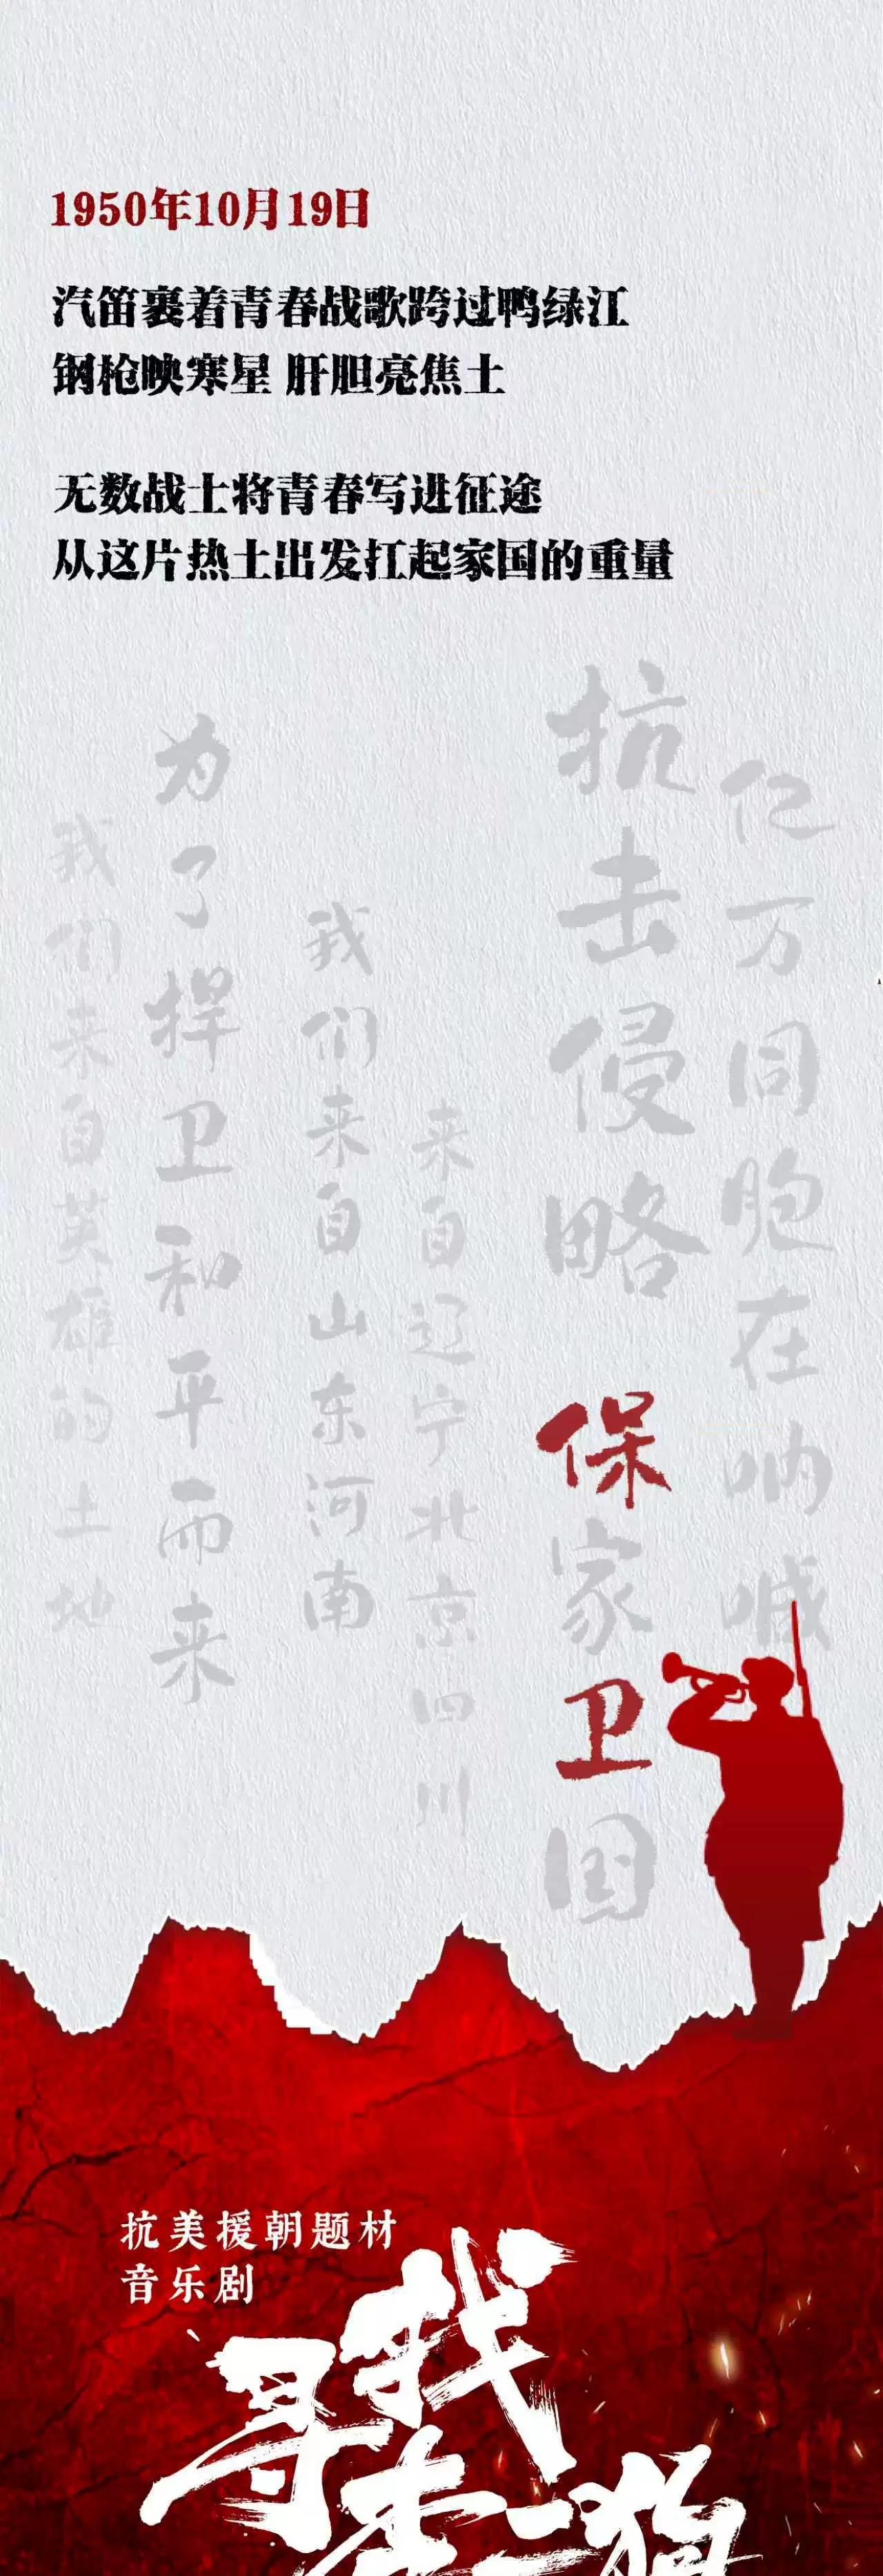 1950年10月19日
汽笛裹着青春战歌跨过鸭绿江
钢枪映寒星 肝胆亮焦土
无数战士将青春写进征途
从这片热土出发扛起家国的重量
亿万同胞在呐喊
抗击侵略
保家卫国
来自辽宁北京四川
我们来自山东河南
为了捍卫和平而来
我们来自英雄的土地
抗美援朝题材
音乐剧
寻我
李二狗